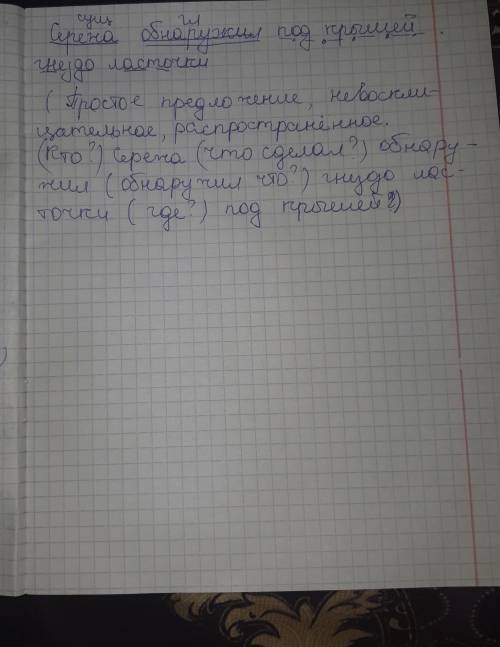 сущ гл
Сережа обнаружил под крышей
гнездо ласточки
(Простое предложение, невоскли-
цательное, распространённое.
(Кто?) Сережа (что сделал?) обнару-
жил (обнаружил что?) гнездо лас-
точки (где?) под крышей)